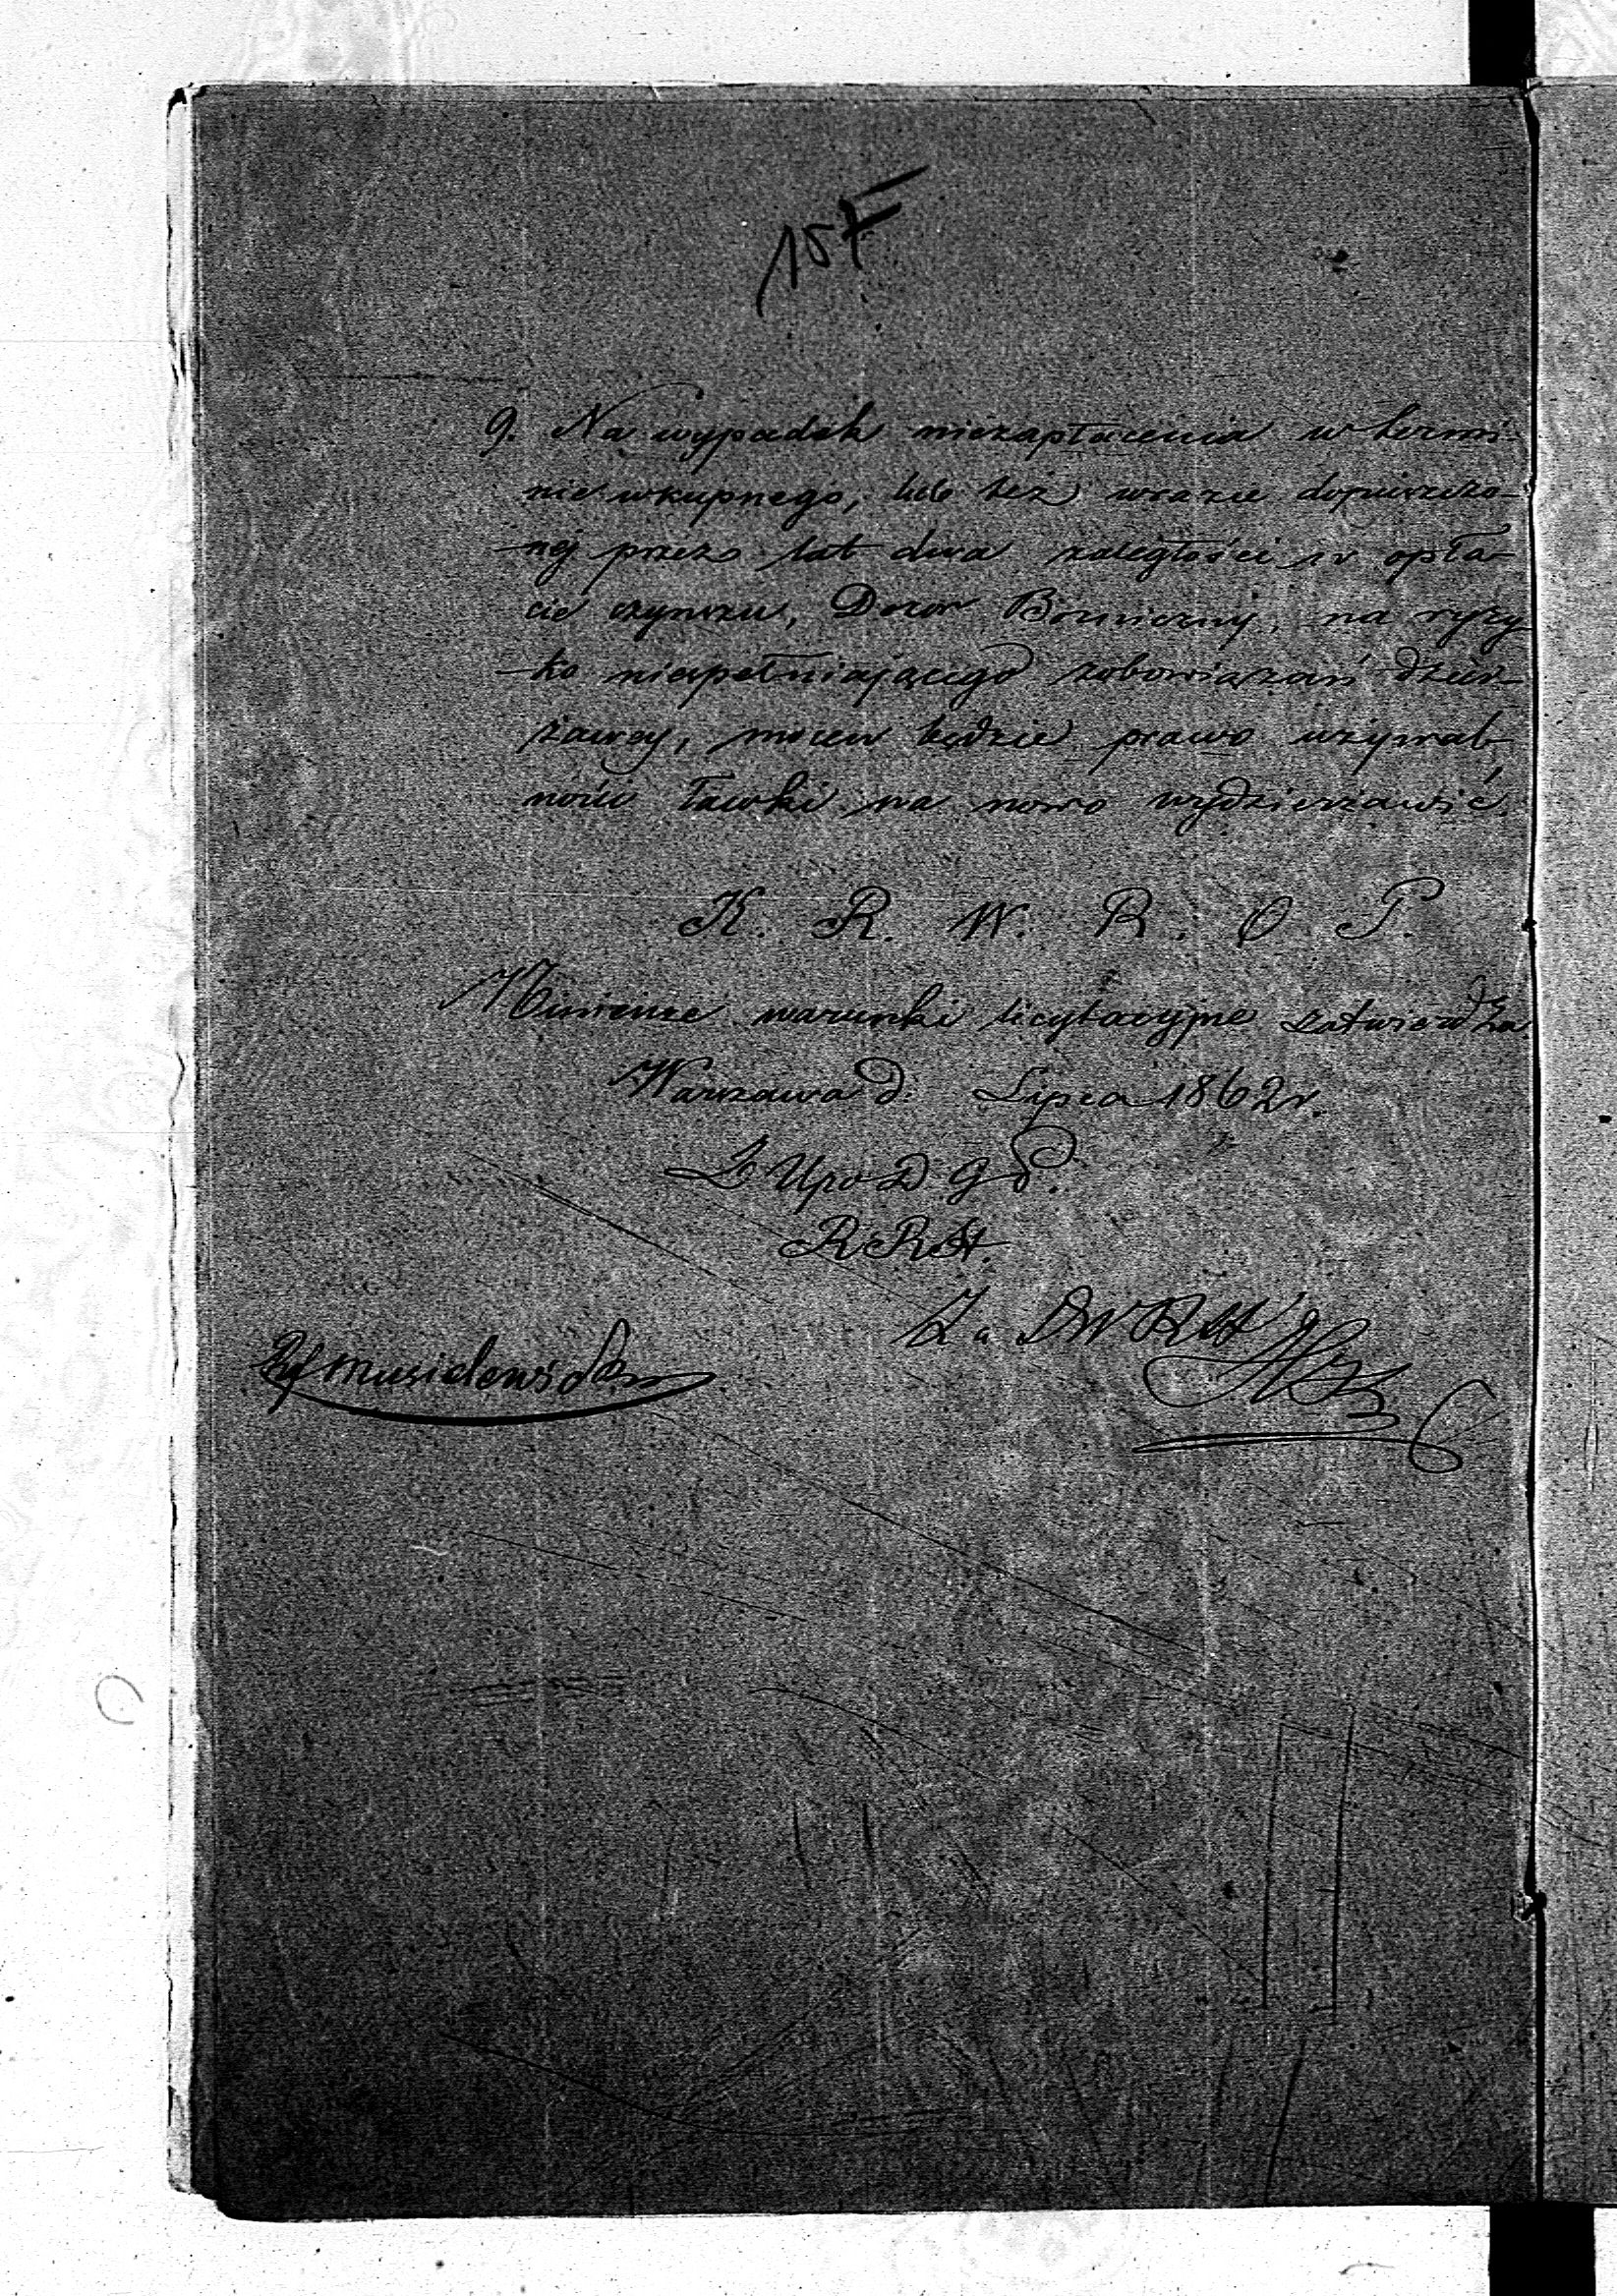 157
9. Na wypadek niezapłacenia w termi-
nie wkupnego, lub też w razie dopuszczo-
nej przez lat dwa zaległości w opła-
cie czynszu, Dozor Bożniczny, na ryzy-
ko niepełniającego zobowiązań dzier-
żawcy, mocen będzie prawo używal-
ności ławki na nowo wydzierżawić.
K. R. W. R. O P.
Niniejsze warunki licytacyjne zatwierdza
Warszawa d. Lipca 1862 r.
Z Upo D G
R R St.
Za D W